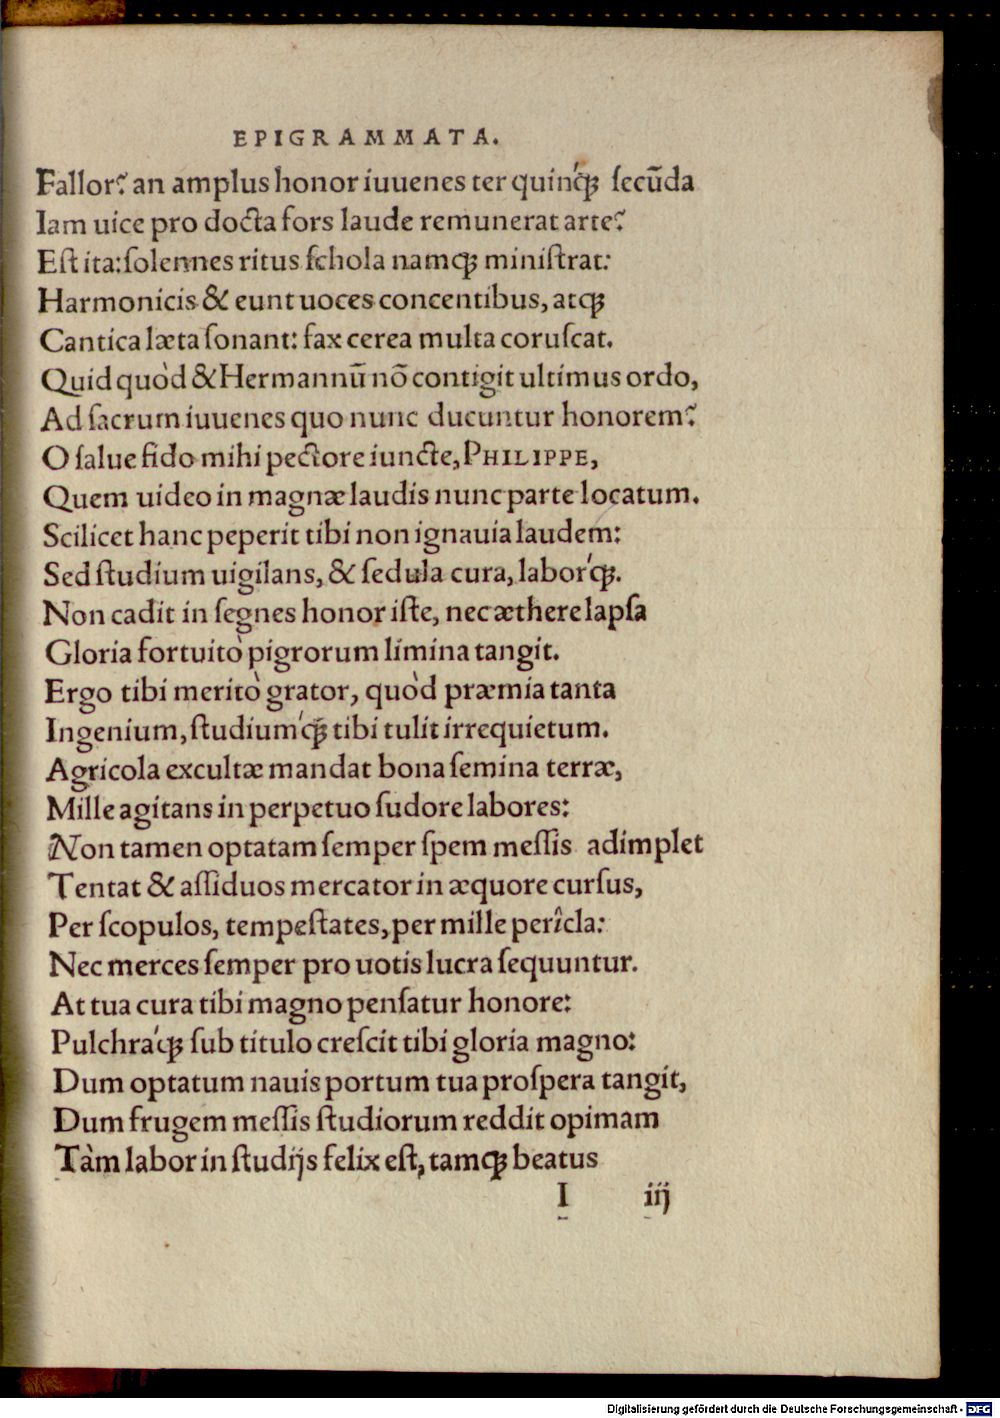 EPIGRAMMATA.
Fallor? an amplus honor iuuenes ter quinq́ꝫ ſecũda
Iam uice pro docta fors laude remunerat arte?
Eſt ita: ſolennes ritus ſchola namqꝫ miniſtrat:
Harmonicis & eunt uoces concentibus, atqꝫ
Cantica læta ſonant: fax cerea multa coruſcat.
Quid quòd & Hermannũ nõ contigit ultimus ordo,
Ad ſacrum iuuenes quo nunc ducuntur honorem?
O ſalue fido mihi pectore iuncte, PHILIPPE,
Quem uideo in magnæ laudis nunc parte locatum.
Scilicet hanc peperit tibi non ignauia laudem:
Sed ſtudium uigilans, & ſedula cura, laborq́ꝫ.
Non cadit in ſegnes honor iſte, nec æthere lapſa
Gloria fortuitò pigrorum limina tangit.
Ergo tibi meritò grator, quòd præmia tanta
Ingenium, ſtudiumq́ꝫ tibi tulit irrequietum.
Agricola excultæ mandat bona ſemina terræ,
Mille agitans in perpetuo ſudore labores:
Non tamen optatam ſemper ſpem meſſis adimplet
Tentat & aſſiduos mercator in æquore curſus,
Per ſcopulos, tempeſtates, per mille perîcla:
Nec merces ſemper pro uotis lucra ſequuntur.
At tua cura tibi magno penſatur honore:
Pulchraq́ꝫ ſub titulo creſcit tibi gloria magno:
Dum optatum nauis portum tua proſpera tangit,
Dum frugem meſſis ſtudiorum reddit opimam
Tàm labor in ſtudijs felix eſt, tamqꝫ beatus
I iij
Digitalisierung gefördert durch die Deutsche Forschungsgemeinschaft - DFG